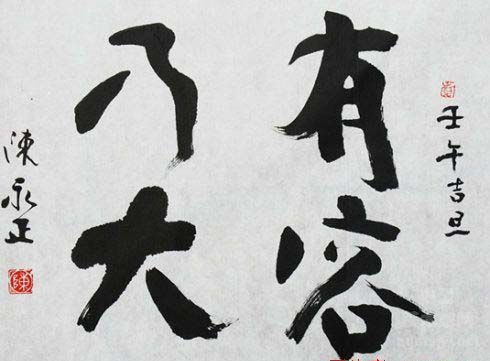 壬午吉旦
有容
乃大
陳永正
陳